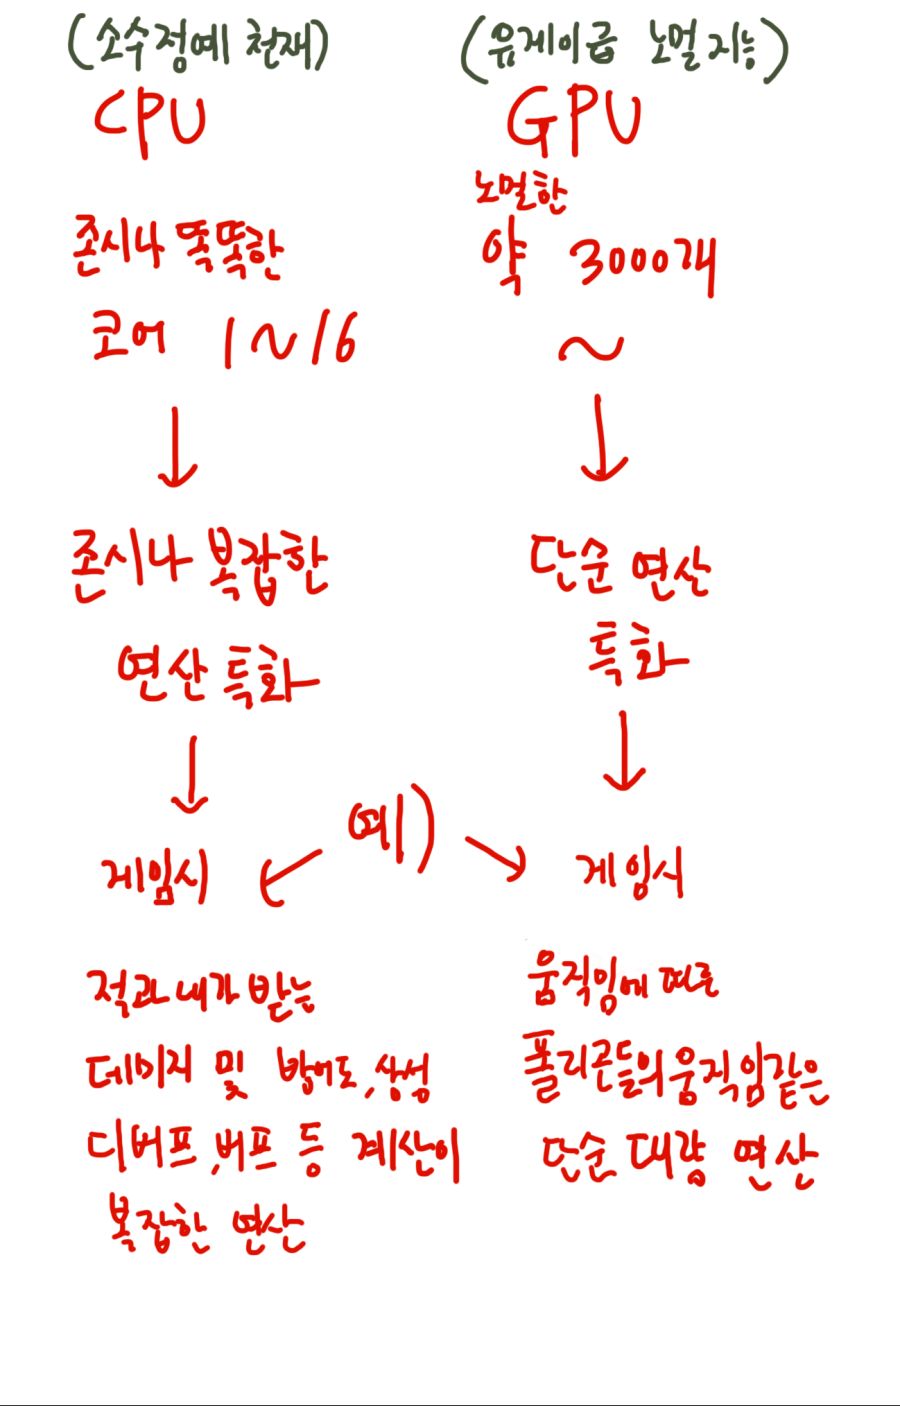 (소수정예 천재)
CPU
존시나 똑똑한
코어 1~16
존시나 복잡한
연산 특화
게임시
적과 내가 받는
데미지 및 방어도, 상성
디버프, 버프 등 계산이
복잡한 연산
예)
(유게이급 노멀 지능)
GPU
노멀한
약 3000개
~
단순 연산
특화
게임시
움직임에 따른
폴리곤들의 움직임같은
단순 대량 연산